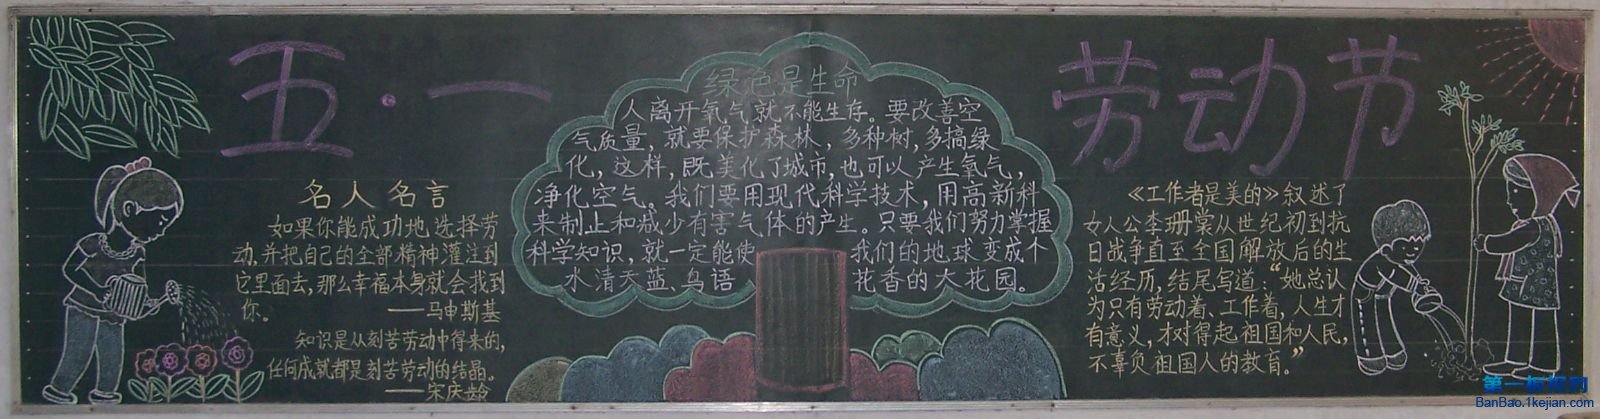 五·一 劳动节
名人名言
如果你能成功地选择劳
动,并把自己的全部精神灌注到
它里面去,那么幸福本身就会找到
你。 ——马申斯基
知识是从刻苦劳动中得来的,
任何成就都是刻苦劳动的结晶。
——宋庆龄
绿色是生命
人离开氧气就不能生存。要改善空
气质量,就要保护森林,多种树,多搞绿
化,这样,既美化了城市,也可以产生氧气,
净化空气。我们要用现代科学技术,用高新科
来制止和减少有害气体的产生。只要我们努力掌握
科学知识,就一定能使我们的地球变成个
水清天蓝、鸟语花香的大花园。
《工作者是美的》叙述了
女人公李珊裳从世纪初到抗
日战争直至全国解放后的生
活经历,结尾写道:“她总认
为只有劳动着、工作着,人生才
有意义,才对得起祖国和人民,
不辜负祖国人的教育。”
第一板报网
BanBao.1kejian.com